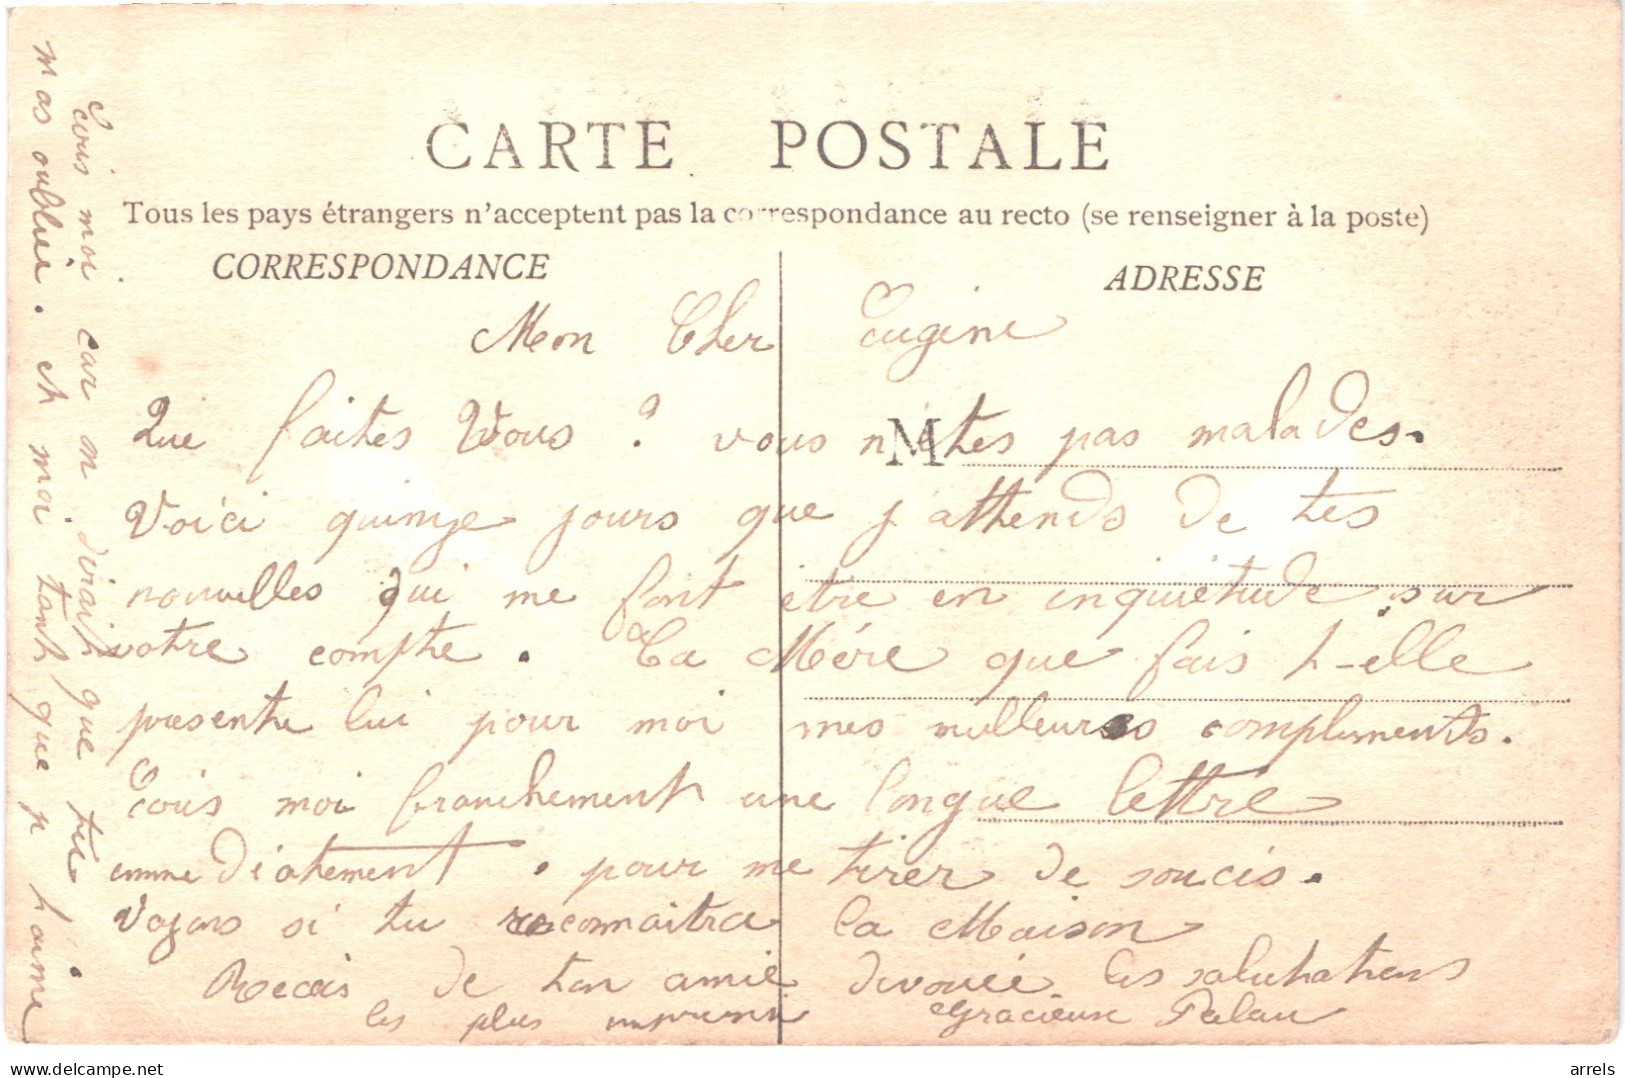 CARTE POSTALE
Tous les pays étrangers n'acceptent pas la correspondance au recto (se renseigner à la poste)
CORRESPONDANCE
ADRESSE
M
Mon Cher Eugène
Que faites Vous ? vous n'êtes pas malades.
Voici quinze jours que j'attends de tes
nouvelles qui me font être en inquiétude sur
votre compte. Ta Mère que fais t-elle
presente lui pour moi mes meilleures compliments.
Ecris moi franchement une longue lettre
immediatement. pour me tirer de soucis.
Voyons si tu reconnaitra la Maison
Recois de ton amie devouée les salutations
les plus Gracieuse Palau
Ecris moi car on dirait que tu
m as oublier. et moi tant que j t'aime
delcampe.net
arrels